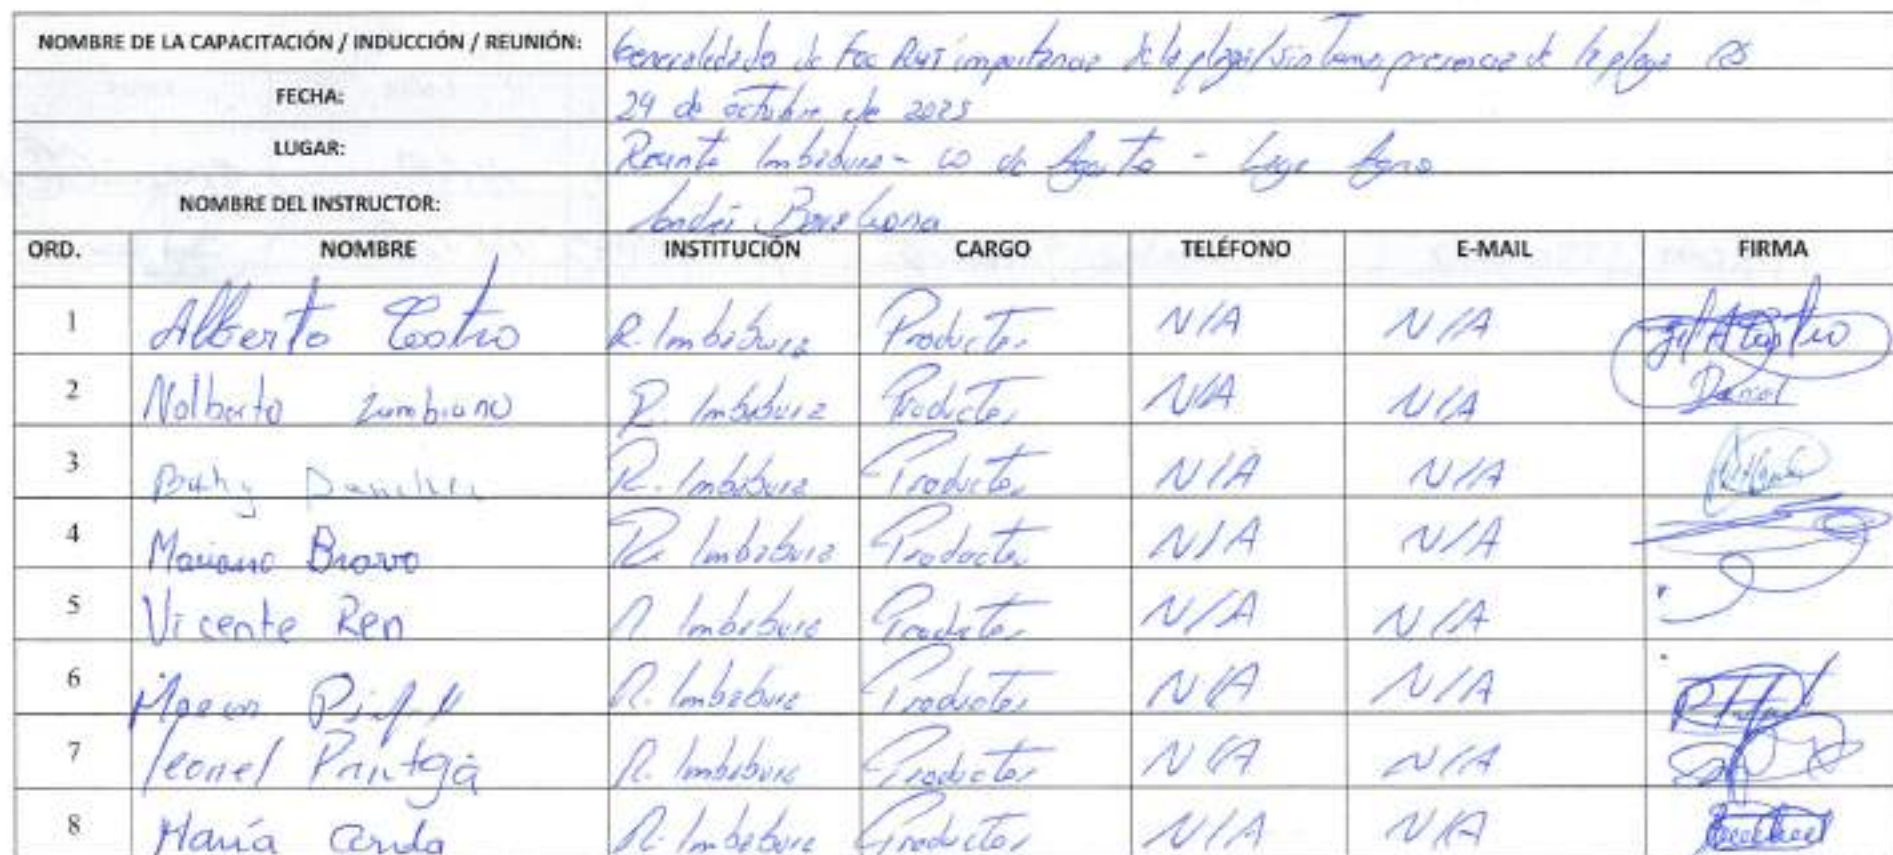 NOMBRE DE LA CAPACITACIÓN / INDUCCIÓN / REUNIÓN: de Foc R4T importancia de la plaga/sintomas presencia de la plaga
FECHA: 24 de octubre de 2025
LUGAR: Imbabura - 10 de Agosto - Lago Agrio
NOMBRE DEL INSTRUCTOR:
ORD. NOMBRE INSTITUCIÓN CARGO TELÉFONO E-MAIL FIRMA
1 Alberto Castro R. Imbabura Productor N/A N/A
2 Nolberto Zambrano R. Imbabura Productor N/A N/A Daniel
3 R. Imbabura Productor N/A N/A
4 Mariano Bravo R. Imbabura Productor N/A N/A
5 Vicente Ren R. Imbabura Productor N/A N/A
6 R. Imbabura Productor N/A N/A
7 leonel R. Imbabura Productor N/A N/A
8 María Cerda R. Imbabura Productor N/A N/A